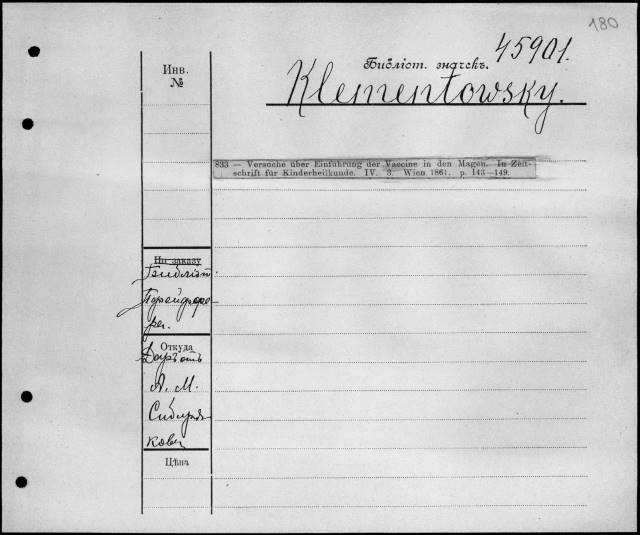 180
45901.
Библіот. значекъ.
Klementowsky.
Инв.
№
833 — Versuche über Einführung der Vaccine in den Magen. In Zeit-
schrift für Kinderheilkunde. IV. 3. Wien 1861. p. 143—149.
По заказу
Библіот
Порейдере-
ра.
Откуда
Даръ отъ
А. М.
Сибиря
кова
Цѣна